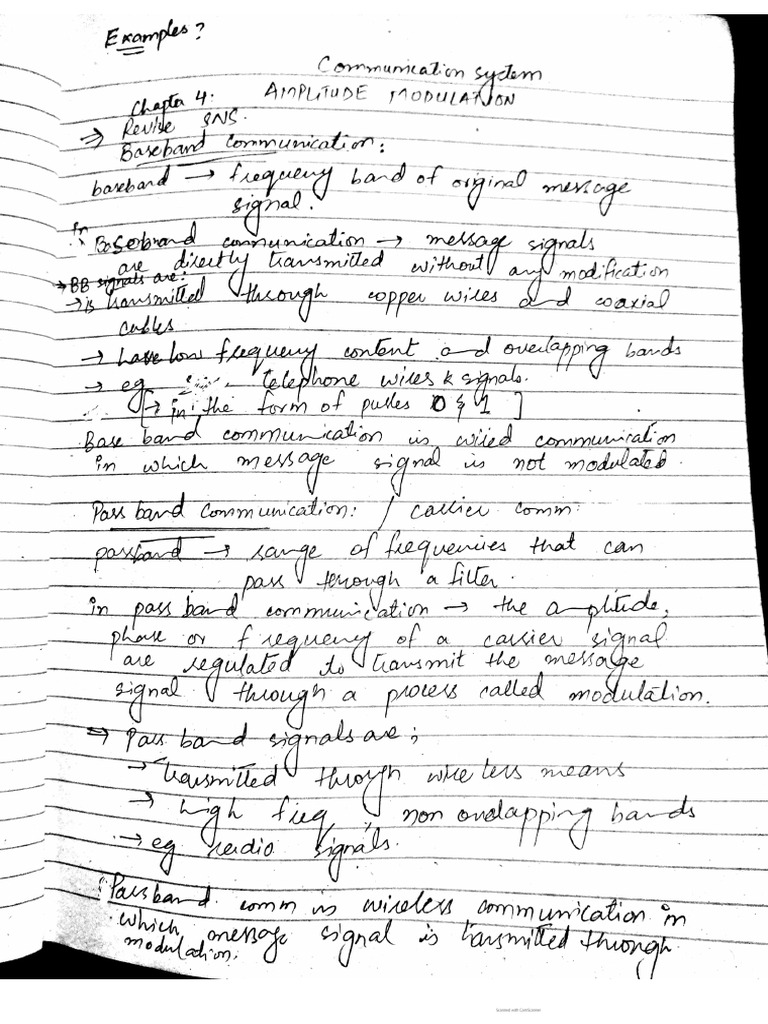 Examples?
Communication system
Chapter 4: AMPLITUDE MODULATION
⇒ Revise SNS.
Baseband communication:
baseband → frequency band of original message
signal.
In
∴ Baseband communication → message signals
are directly transmitted without any modification
→ BB signals are:
→ is transmitted through copper wires and coaxial
cables
→ have low frequency content and overlapping bands
→ eg telephone wires & signals.
[→ in the form of pulses 0 & 1 ]
Base band communication is wired communication
in which message signal is not modulated.
Pass band communication: / carrier comm:
passband → range of frequencies that can
pass through a filter.
in pass band communication → the amplitude,
phase or frequency of a carrier signal
are regulated to transmit the message
signal through a process called modulation.
⇒ Pass band signals are;
→ transmitted through wireless means
→ high freq, non overlapping bands
→ eg radio signals.
∴ Passband comm is wireless communication in
which message signal is transmitted through
modulation.
Scanned with CamScanner